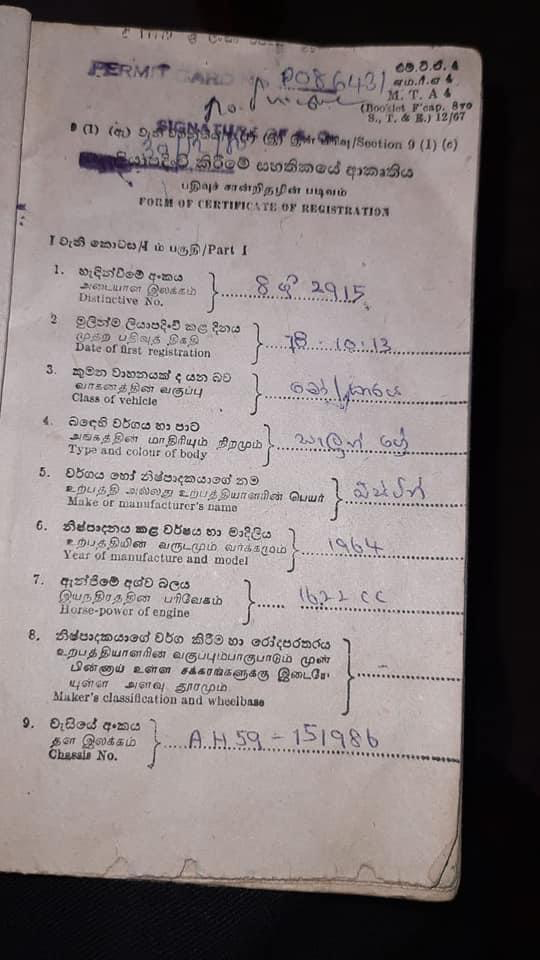 PERMIT CARD No P086431
එම්.ටී.ඒ. 4
எம்.ரீ.ஏ 4
M. T. A 4
(Booklet F'cap. 8vo
S., T. & E.) 12/67
SIGNATURE OF
Section 9 (1) (c)
ලියාපදිංචි කිරීමේ සහතිකයේ ආකෘතිය
பதிவுச் சான்றிதழின் படிவம்
FORM OF CERTIFICATE OF REGISTRATION
I වැනි කොටස/I ம் பகுதி/Part I
1. හැඳින්වීමේ අංකය
அடையாள இலக்கம்
Distinctive No.
8 ශ්‍රී 2915
2 මුලින්ම ලියාපදිංචි කළ දිනය
முதற் பதிவுத் திகதி
Date of first registration
78-10-13
3. කුමන වාහනයක් ද යන බව
வாகனத்தின் வகுப்பு
Class of vehicle
මෝ/කාරය
4. බඳෙහි වර්ගය හා පාට
அங்கத்தின் மாதிரியும் நிறமும்
Type and colour of body
සැලුන් ග්‍රේ
5. වර්ගය හෝ නිෂ්පාදකයාගේ නම
உற்பத்தி அல்லது உற்பத்தியாளரின் பெயர்
Make or manufacturer's name
ඔස්ටින්
6. නිෂ්පාදනය කළ වර්ෂය හා මාදිලිය
உற்பத்தியின் வருடமும் வர்க்கமும்
Year of manufacture and model
1964
7. ඇන්ජිමේ අශ්ව බලය
இயந்திரத்தின் பரிவேகம்
Horse-power of engine
1622 CC
8. නිෂ්පාදකයාගේ වර්ග කිරීම හා රෝදපරතරය
உற்பத்தியாளரின் வகுப்பும்பாகுபாடும் முன்
பின்னாய் உள்ள சக்கரங்களுக்கு இடையே
யுள்ள அளவு தூரமும்
Maker's classification and wheelbase
9. චැසියේ අංකය
தள இலக்கம்
Chassis No.
AH59-151986